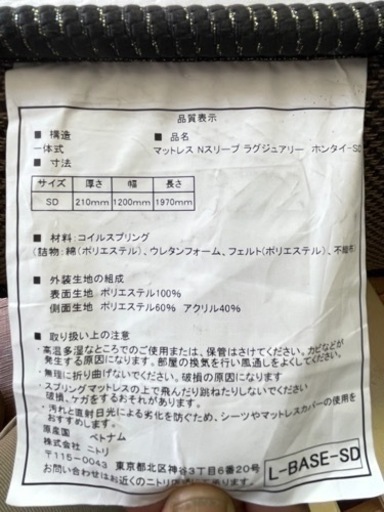 品質表示
■ 構造
■ 品名
一体式
マットレス Nスリープ ラグジュアリー ホンタイ-SD
■ 寸法
サイズ 厚さ 幅 長さ
SD 210mm 1200mm 1970mm
■ 材料:コイルスプリング
(詰物:綿(ポリエステル)、ウレタンフォーム、フェルト(ポリエステル)、不織布)
■ 外装生地の組成
表面生地 ポリエステル100%
側面生地 ポリエステル60% アクリル40%
■ 取り扱い上の注意
・高温多湿なところでのご使用または、保管はさけてください。カビなどが
発生する原因になります。部屋の換気を行い風通しをよくしてください。
・無理に折り曲げないでください。破損の原因になります
・スプリングマットレスの上で飛んだり跳ねたりしないでください
破損、ケガをするおそれがあります。
・汚れと直射日光による劣化を防ぐため、シーツやマットレスカバーの使用を
おすすめします。
原産国 ベトナム
株式会社 ニトリ
〒115-0043 東京都北区神谷3丁目6番20号
お問い合わせはお近くのニトリ
L-BASE-SD